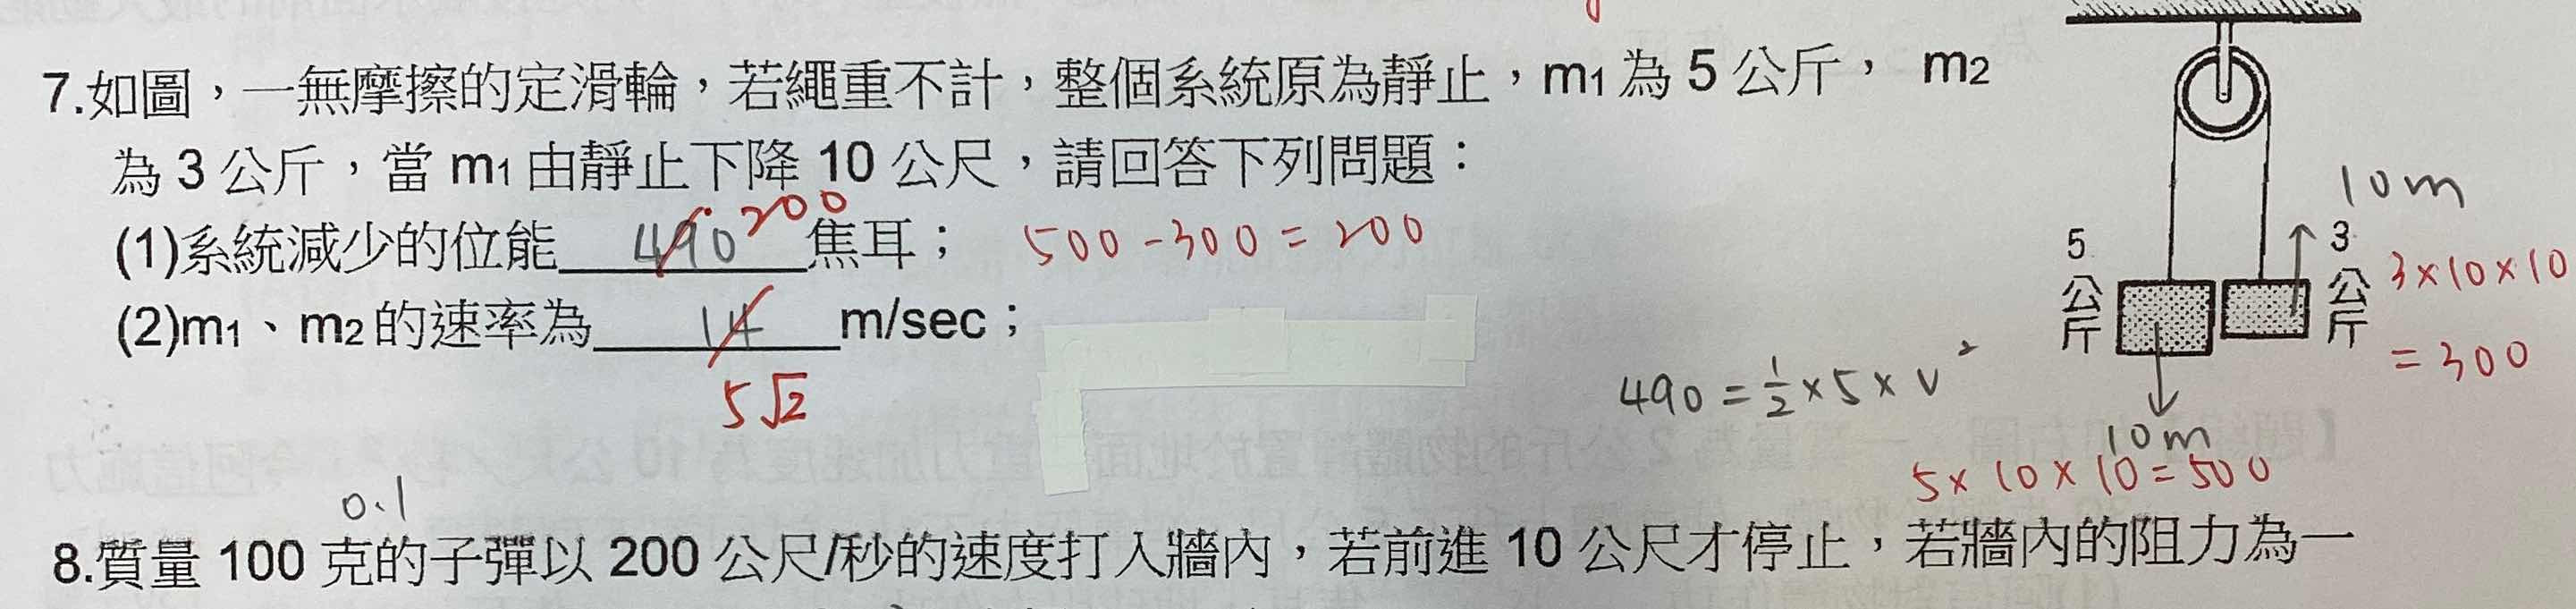 7.如圖，一無摩擦的定滑輪，若繩重不計，整個系統原為靜止，m1為5公斤， m2
為3公斤，當m1由靜止下降10公尺，請回答下列問題：
(1)系統減少的位能 490 200 焦耳； 500-300=200
(2)m1、m2的速率為 14 m/sec；
5√2
490=½×5×v²
10m
5公斤
3公斤
3×10×10
=300
10m
5×10×10=500
0.1
8.質量100克的子彈以200公尺/秒的速度打入牆內，若前進10公尺才停止，若牆內的阻力為一